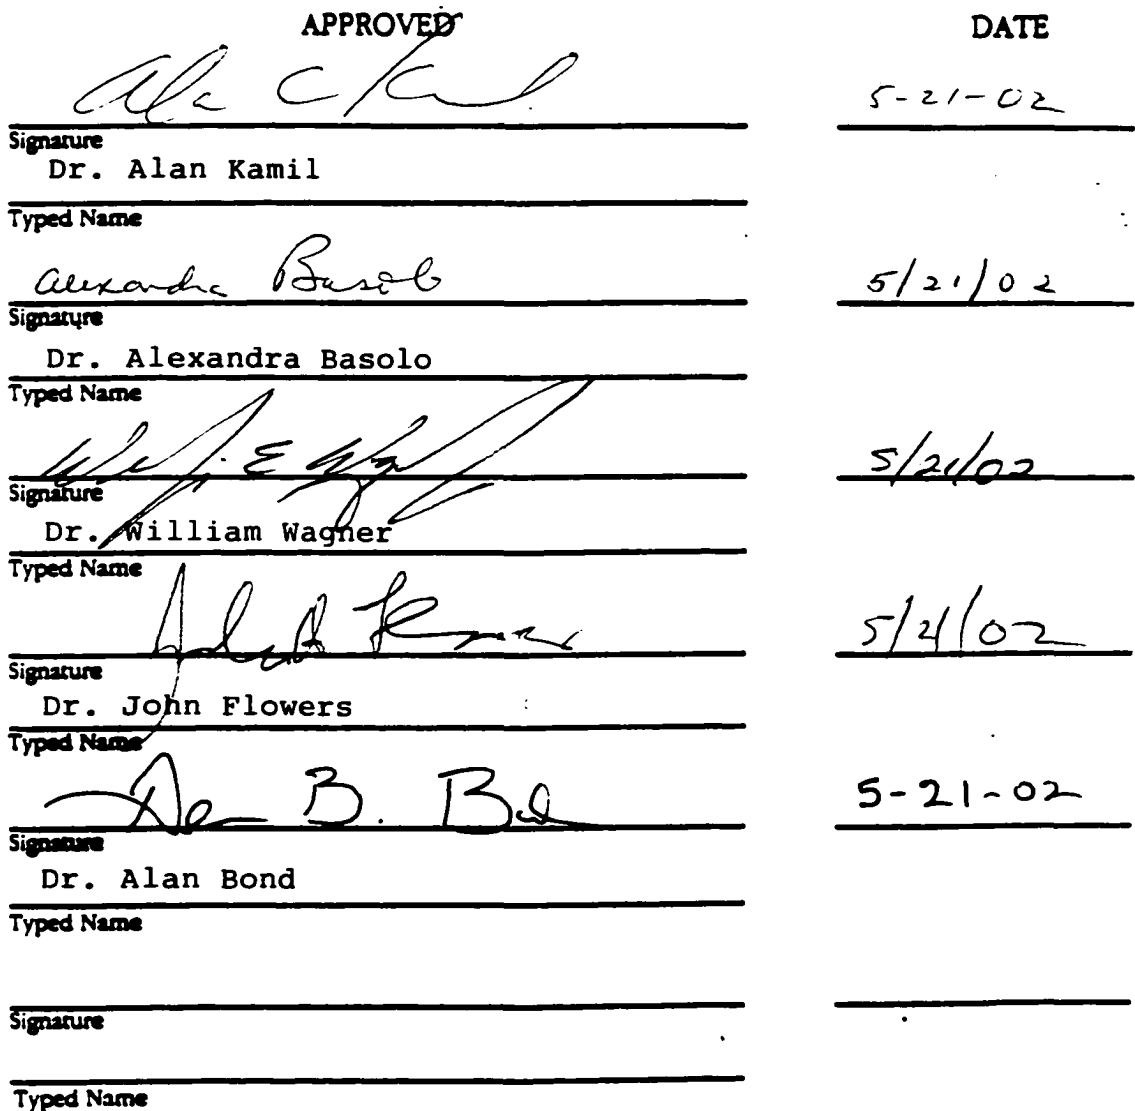 APPROVED DATE
Alan C Kamil 5-21-02
Signature
Dr. Alan Kamil
Typed Name
Alexandra Basolo 5/21/02
Signature
Dr. Alexandra Basolo
Typed Name
William E Wagner 5/21/02
Signature
Dr. William Wagner
Typed Name
John Flowers 5/21/02
Signature
Dr. John Flowers
Typed Name
Alan B. Bond 5-21-02
Signature
Dr. Alan Bond
Typed Name
Signature
Typed Name